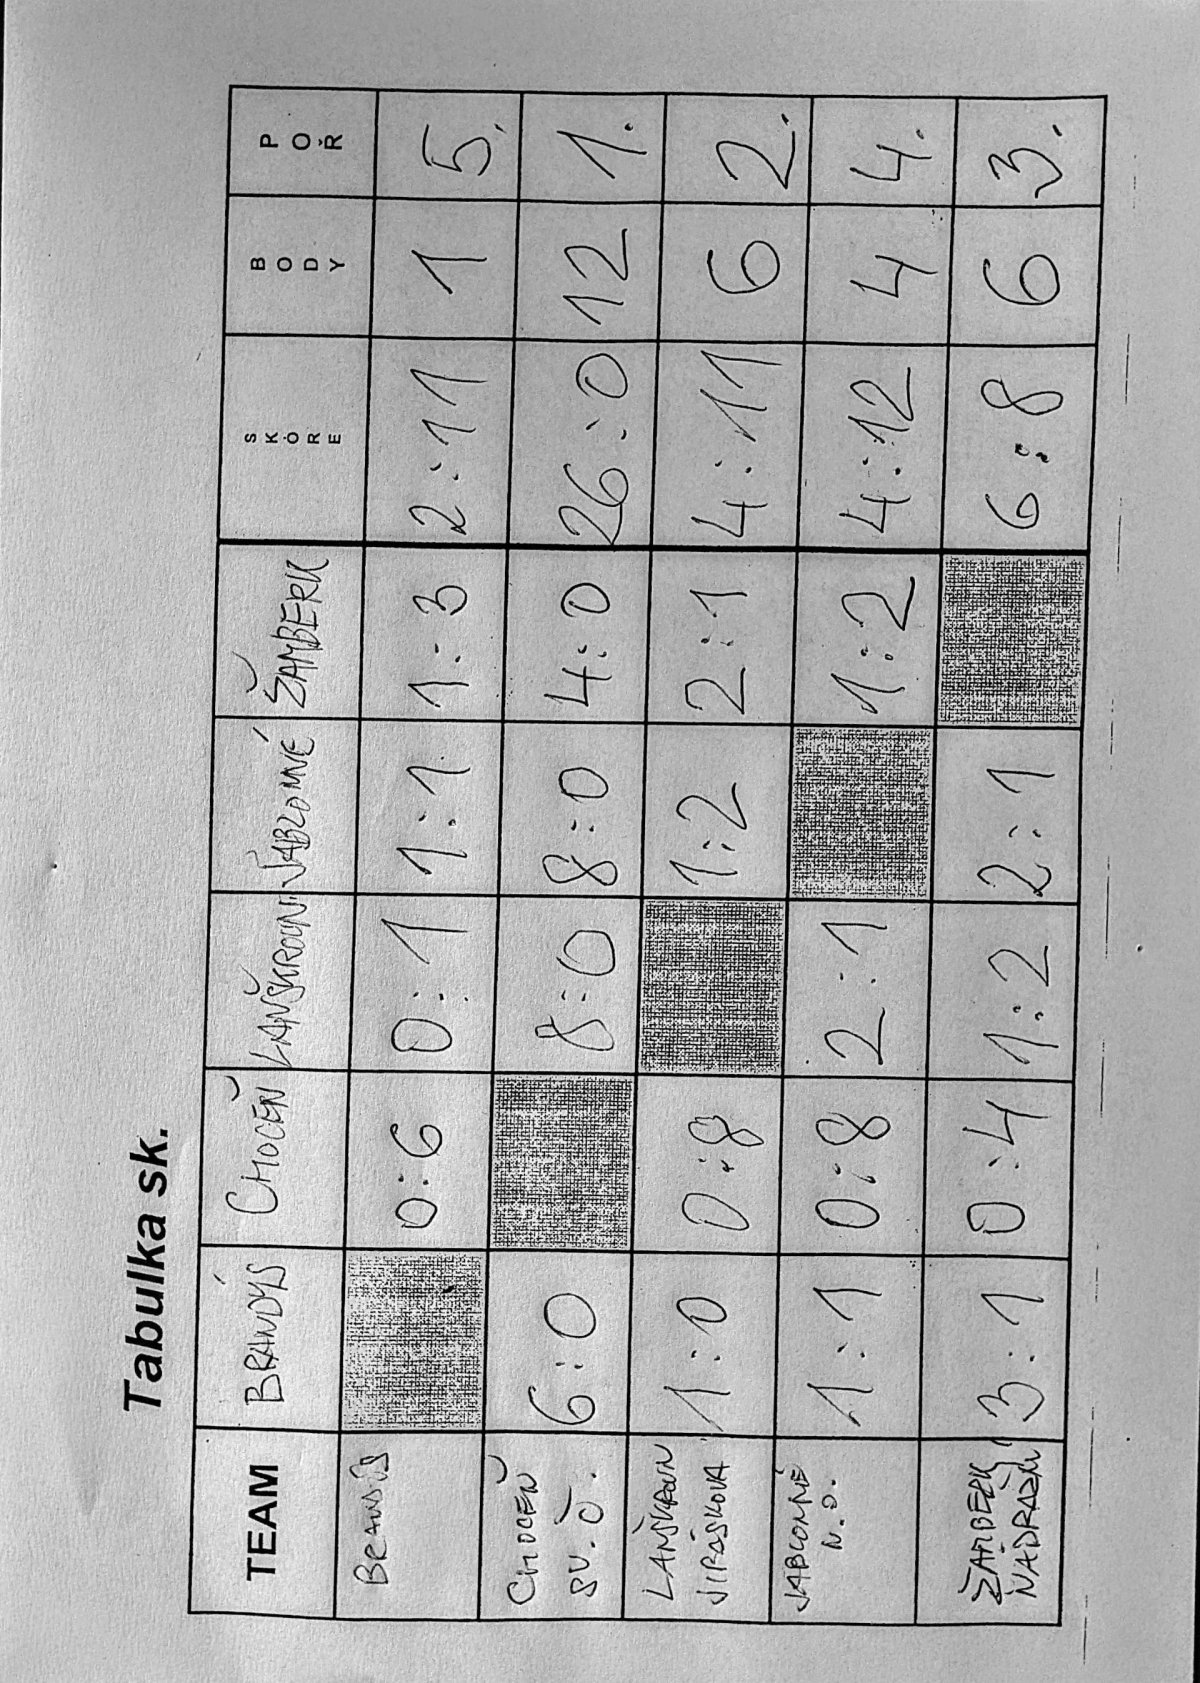 Tabulka sk.
TEAM BRANDÝS CHOCEŇ LANŠKROUN JABLONNÉ ŽAMBERK SKÓRE BODY POŘ
BRANDÝS 0:6 0:1 1:1 1:3 2:11 1 5.
CHOCEŇ 6:0 8:0 8:0 4:0 26:0 12 1.
SV.Č.
LANŠKROUN 1:0 0:8 1:2 2:1 4:11 6 2.
JIRÁSKOVA
JABLONNÉ 1:1 0:8 2:1 1:2 4:12 4 4.
N.O.
ŽAMBERK 3:1 0:4 1:2 2:1 6:8 6 3.
NÁDRAŽNÍ